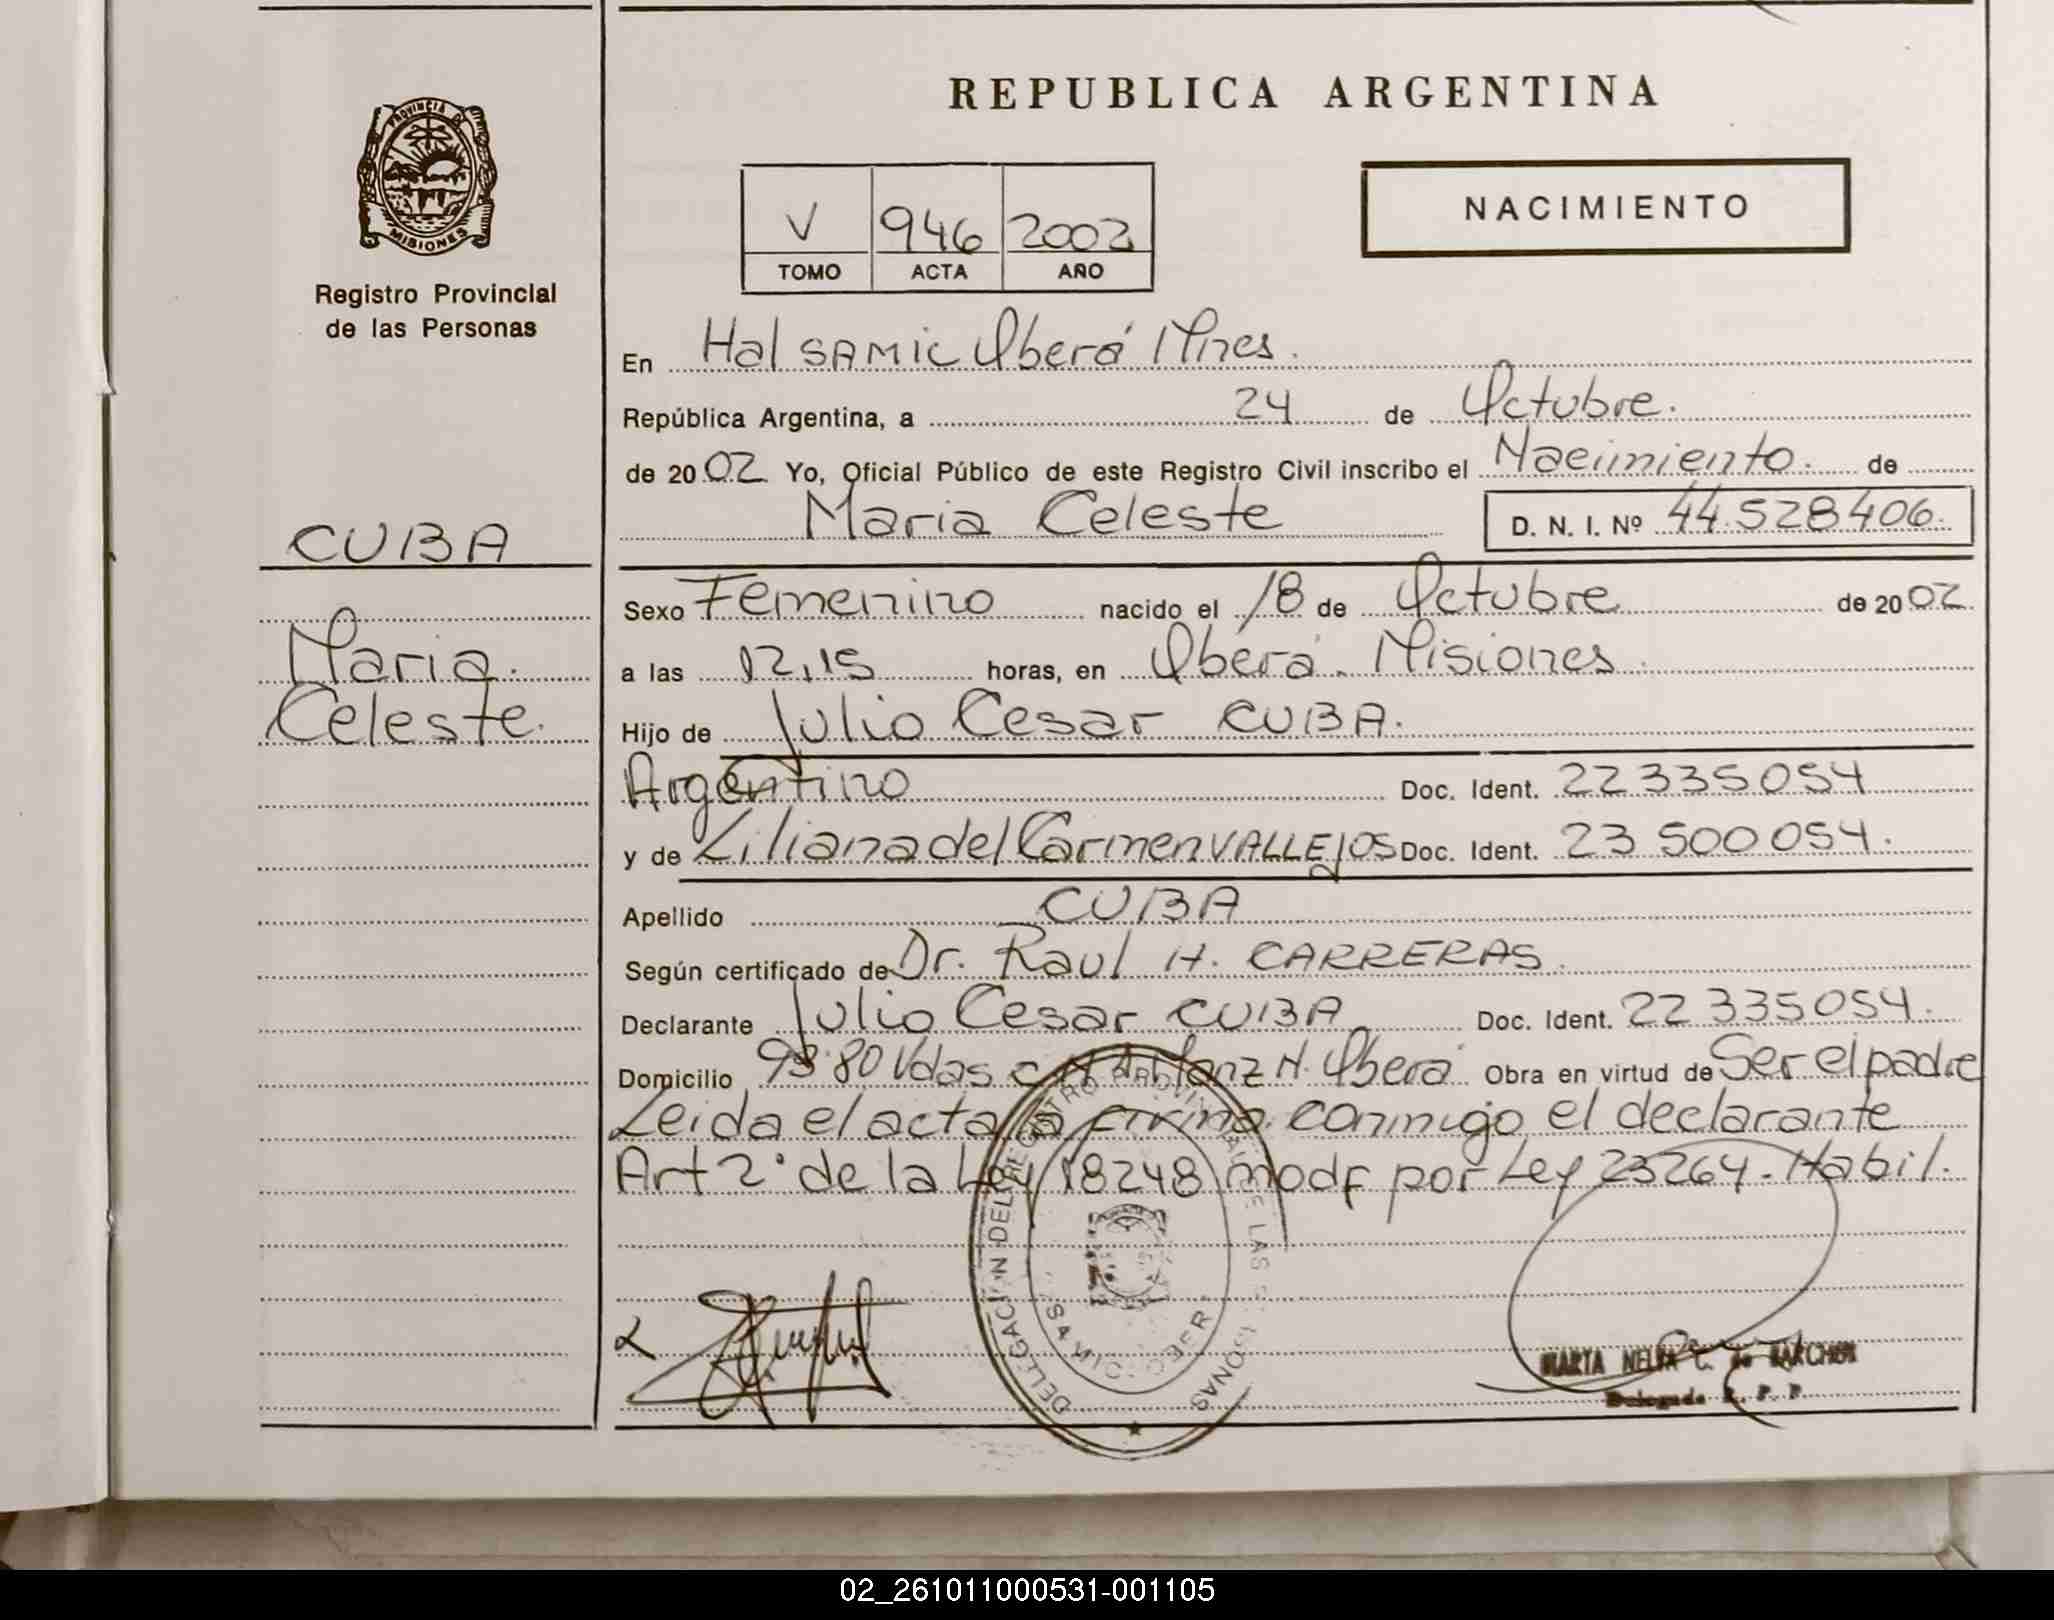 REPUBLICA ARGENTINA
PROVINCIA DE
MISIONES
Registro Provincial
de las Personas
NACIMIENTO
V 946 2002
TOMO ACTA AÑO
En Hal SAMIC Oberá Mnes.
República Argentina, a 24 de Octubre.
de 2002 Yo, Oficial Público de este Registro Civil inscribo el Nacimiento. de
Maria Celeste D. N. I. Nº 44.528406.
CUBA
Maria.
Celeste.
Sexo Femenino nacido el 18 de Octubre de 2002
a las 12,15 horas, en Oberá. Misiones
Hijo de Julio Cesar CUBA.
Argentino Doc. Ident. 22 335 054
y de Liliana del Carmen VALLEJOS Doc. Ident. 23 500 054.
Apellido CUBA
Según certificado de Dr. Raul H. CARRERAS
Declarante Julio Cesar CUBA Doc. Ident. 22 335 054.
Domicilio 80 Vdas Manz N. Oberá Obra en virtud de Ser el padre
Leida el acta la firma conmigo el declarante
Art 2° de la Ley 18248 modf por Ley 23264. Habil.
DELEGACION DEL REGISTRO PROVINCIAL DE LAS PERSONAS
SAMIC OBERA
MARTA NELIDA C. de MARCHUK
Delegada R. P. P.
02_261011000531-001105